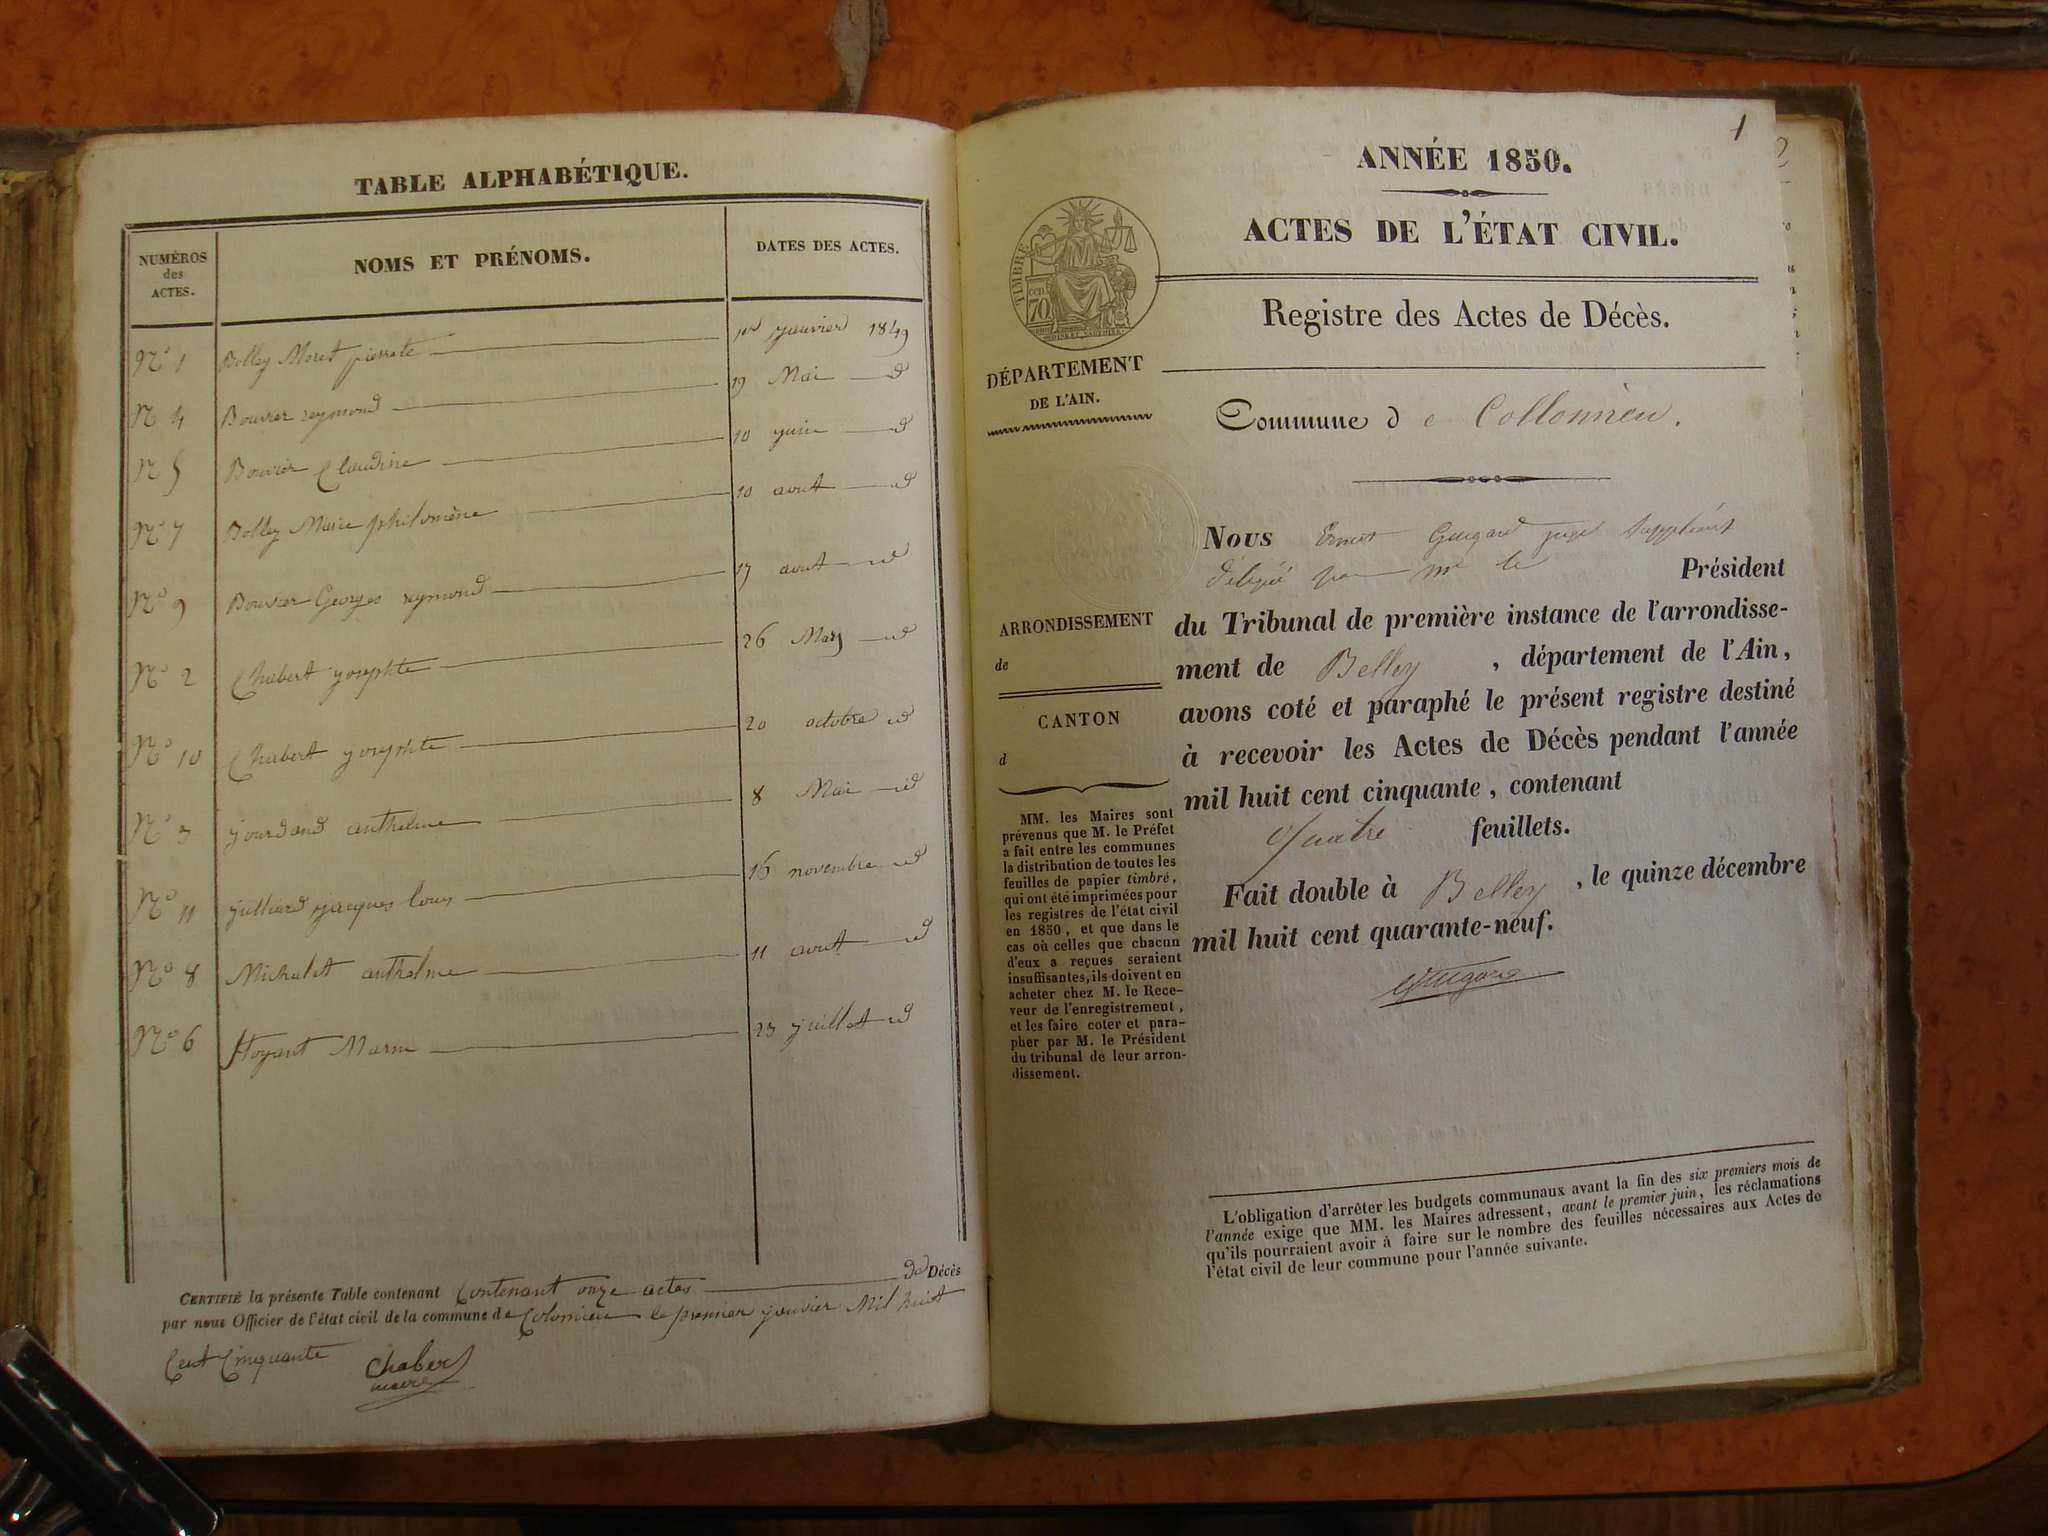 TABLE ALPHABÉTIQUE.
NUMÉROS des ACTES. NOMS ET PRÉNOMS. DATES DES ACTES.
No 1 Bolley Moret pierrete 1er janvier 1849
N 4 Bouvier reymond 19 Mai id
N 5 Bouvier Claudine 10 juin id
No 7 Bolley Marie philomène 10 aout id
No 9 Bouvier Georges reymond 17 aout id
No 2 Chabert josephte 26 Mars id
No 10 Chabert josephte 20 octobre id
No 3 jourdand anthelme 8 Mai id
No 11 julliard jacques Louis 16 novembre id
No 8 Michalet anthelme 11 aout id
No 6 Marie 23 juillet id
CERTIFIÉ la présente Table contenant Contenant onze actes de Décès
par nous Officier de l'état civil de la commune de Colomieu le premier janvier Mil huit
Cent Cinquante
Chabert
maire
1
ANNÉE 1850.
ACTES DE L'ÉTAT CIVIL.
Registre des Actes de Décès.
TIMBRE
70
DÉPARTEMENT
DE L'AIN.
Commune de Collomieu.
Nous Ernest Guigard juge Suppléant
délégué par Mr le Président
du Tribunal de première instance de l'arrondisse-
ment de Belley, département de l'Ain,
avons coté et paraphé le présent registre destiné
à recevoir les Actes de Décès pendant l'année
mil huit cent cinquante, contenant
Quatre feuillets.
Fait double à Belley, le quinze décembre
mil huit cent quarante-neuf.
ARRONDISSEMENT
de
CANTON
d
MM. les Maires sont
prévenus que M. le Préfet
a fait entre les communes
la distribution de toutes les
feuilles de papier timbré,
qui ont été imprimées pour
les registres de l'état civil
en 1850, et que dans le
cas où celles que chacun
d'eux a reçues seraient
insuffisantes, ils doivent en
acheter chez M. le Rece-
veur de l'enregistrement,
et les faire coter et para-
pher par M. le Président
du tribunal de leur arron-
dissement.
L'obligation d'arrêter les budgets communaux avant la fin des six premiers mois de
l'année exige que MM. les Maires adressent, avant le premier juin, les réclamations
qu'ils pourraient avoir à faire sur le nombre des feuilles nécessaires aux Actes de
l'état civil de leur commune pour l'année suivante.
2